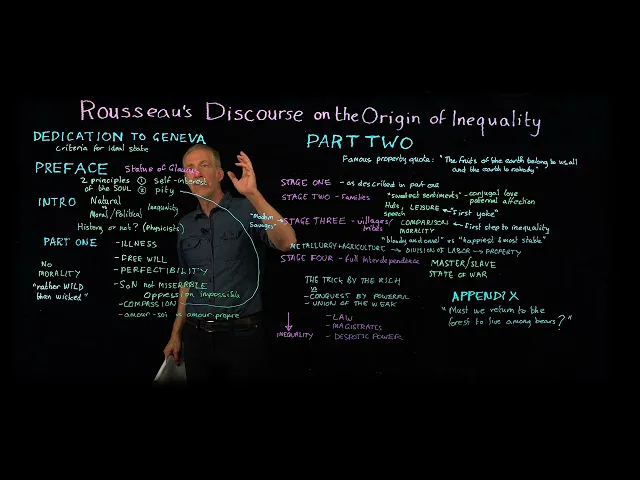 Rousseau's Discourse on the Origin of Inequality
DEDICATION TO GENEVA
Criteria for ideal state
PREFACE Statue of Glaucus
2 principles ① self-interest
of the SOUL ② pity
INTRO Natural
vs
Moral/Political
Inequality
History or not? (Physicists)
PART ONE
NO
MORALITY
"rather WILD
than wicked"
- ILLNESS
- FREE WILL
- PERFECTIBILITY
- SoN not MISERABLE
Oppression impossible
- COMPASSION
- amour-soi vs amour-propre
PART TWO
Famous property quote: "The fruits of the earth belong to us all
and the earth to nobody"
STAGE ONE - as described in part one
STAGE TWO - Families
"sweetest sentiments" - conjugal love
paternal affection
Huts, LEISURE "First yoke"
speech
"Modern
Savages"
STAGE THREE - villages/
tribes
COMPARISON First step to inequality
MORALITY
"bloody and cruel" vs "happiest & most stable"
METALLURGY + AGRICULTURE → DIVISION OF LABOR → PROPERTY
STAGE FOUR - full interdependence
MASTER/SLAVE
STATE OF WAR
THE TRICK BY THE RICH
vs
- CONQUEST BY POWERFUL
- UNION OF THE WEAK
INEQUALITY
- LAW
- MAGISTRATES
- DESPOTIC POWER
APPENDIX
"Must we return to the
forest to live among bears?"